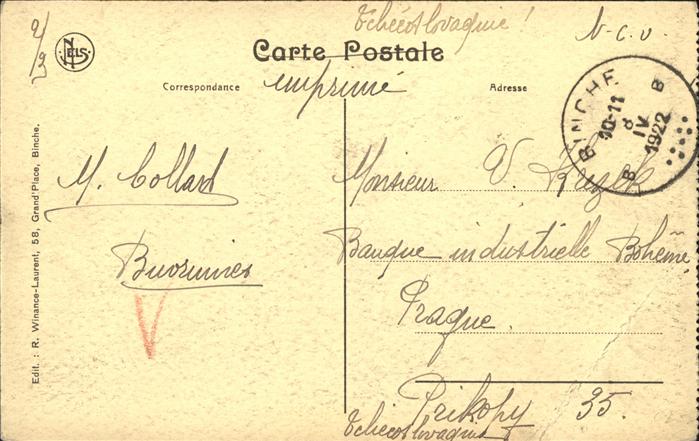 Tchécoslovaquie!
N-C-V-
2/3
NELS
Carte Postale
imprimé
Correspondance
Adresse
BINCHE B
10-11
8
IV
1922
B
M. Collard
Buvrinnes
Monsieur V.
Banque industrielle Bohême
Prague.
Prikopy 35.
Tchécoslovaquie
Edit. : R. Winance-Laurent, 58, Grand'Place, Binche.